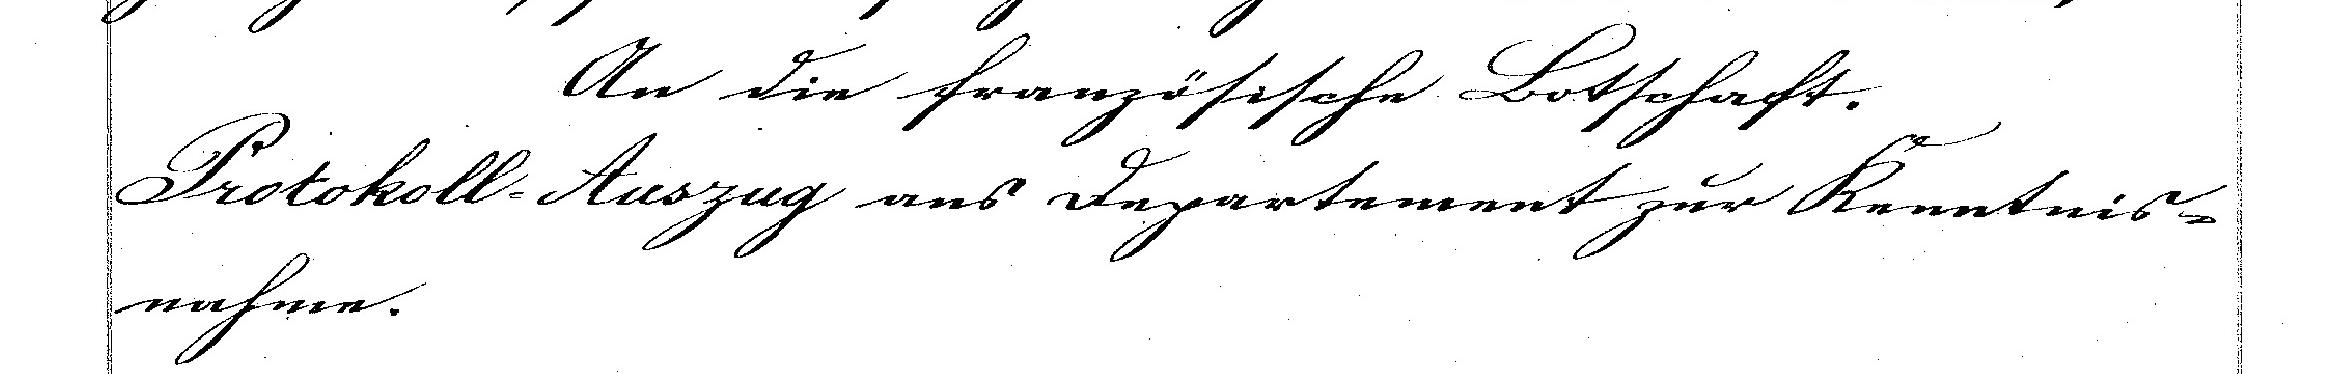 An die französische Botschaft.
Protokoll-Auszug ans Departement zur Kenntnis-
nahme.